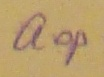 a op